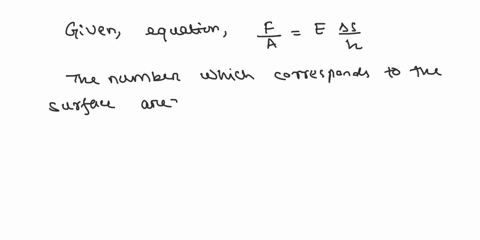 Given, equation, F/A = E Δs/h
The number which corresponds to the
surface are